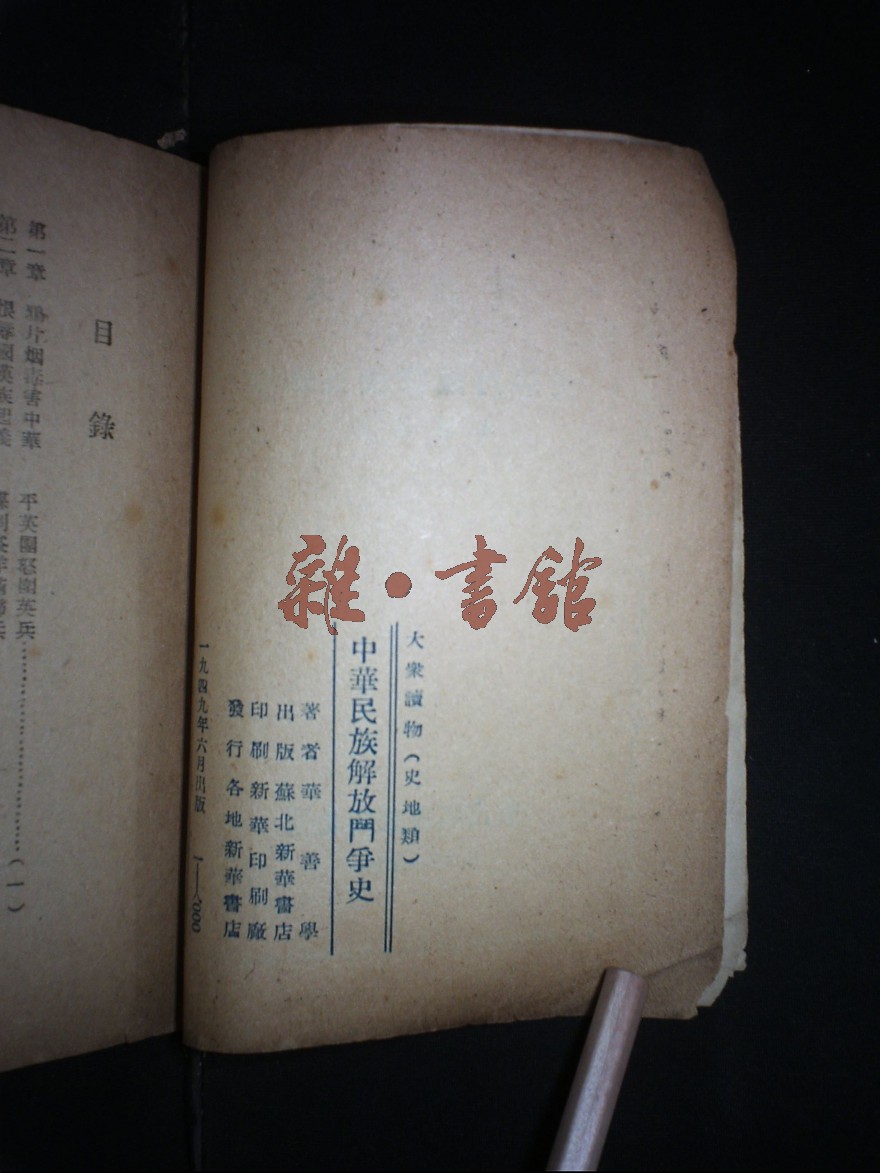 雜·書館
大衆讀物(史地類)
中華民族解放鬥爭史
著者 華善學
出版 蘇北新華書店
印刷 新華印刷廠
發行 各地新華書店
一九四九年六月出版
目錄
第一章 鴉片烟毒害中華 平英團怒圍英兵……(一)
第二章